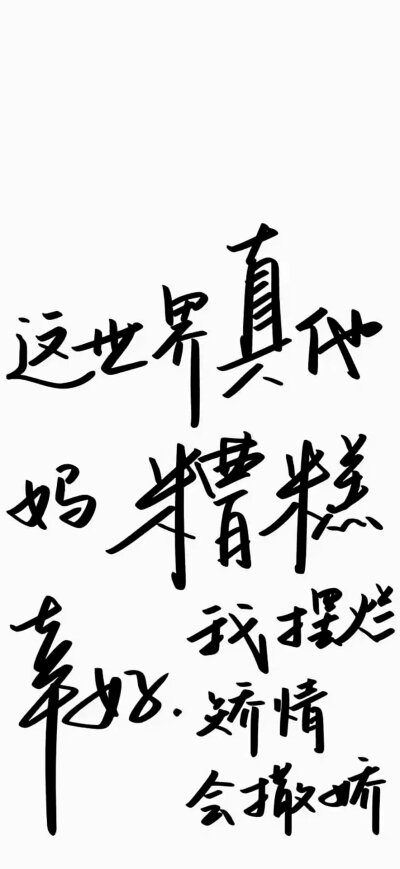 这世界真他
妈糟糕
幸好.
我摆烂
矫情
会撒娇